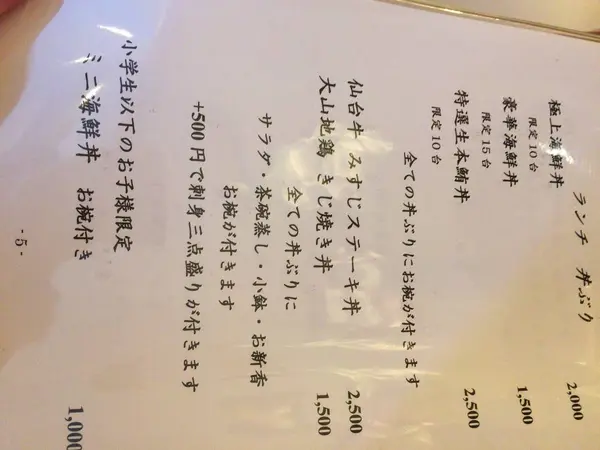 ランチ 丼ぶり
極上海鮮丼 2,000
限定10台
豪華海鮮丼 1,500
限定15台
特選生本鮪丼 2,500
限定10台
全ての丼ぶりにお椀が付きます
仙台牛 みすじステーキ丼 2,500
大山地鶏 きじ焼き丼 1,500
全ての丼ぶりに
サラダ・茶碗蒸し・小鉢・お新香
お椀が付きます
+500円で刺身三点盛りが付きます
小学生以下のお子様限定
ミニ海鮮丼 お椀付き 1,000
- 5 -